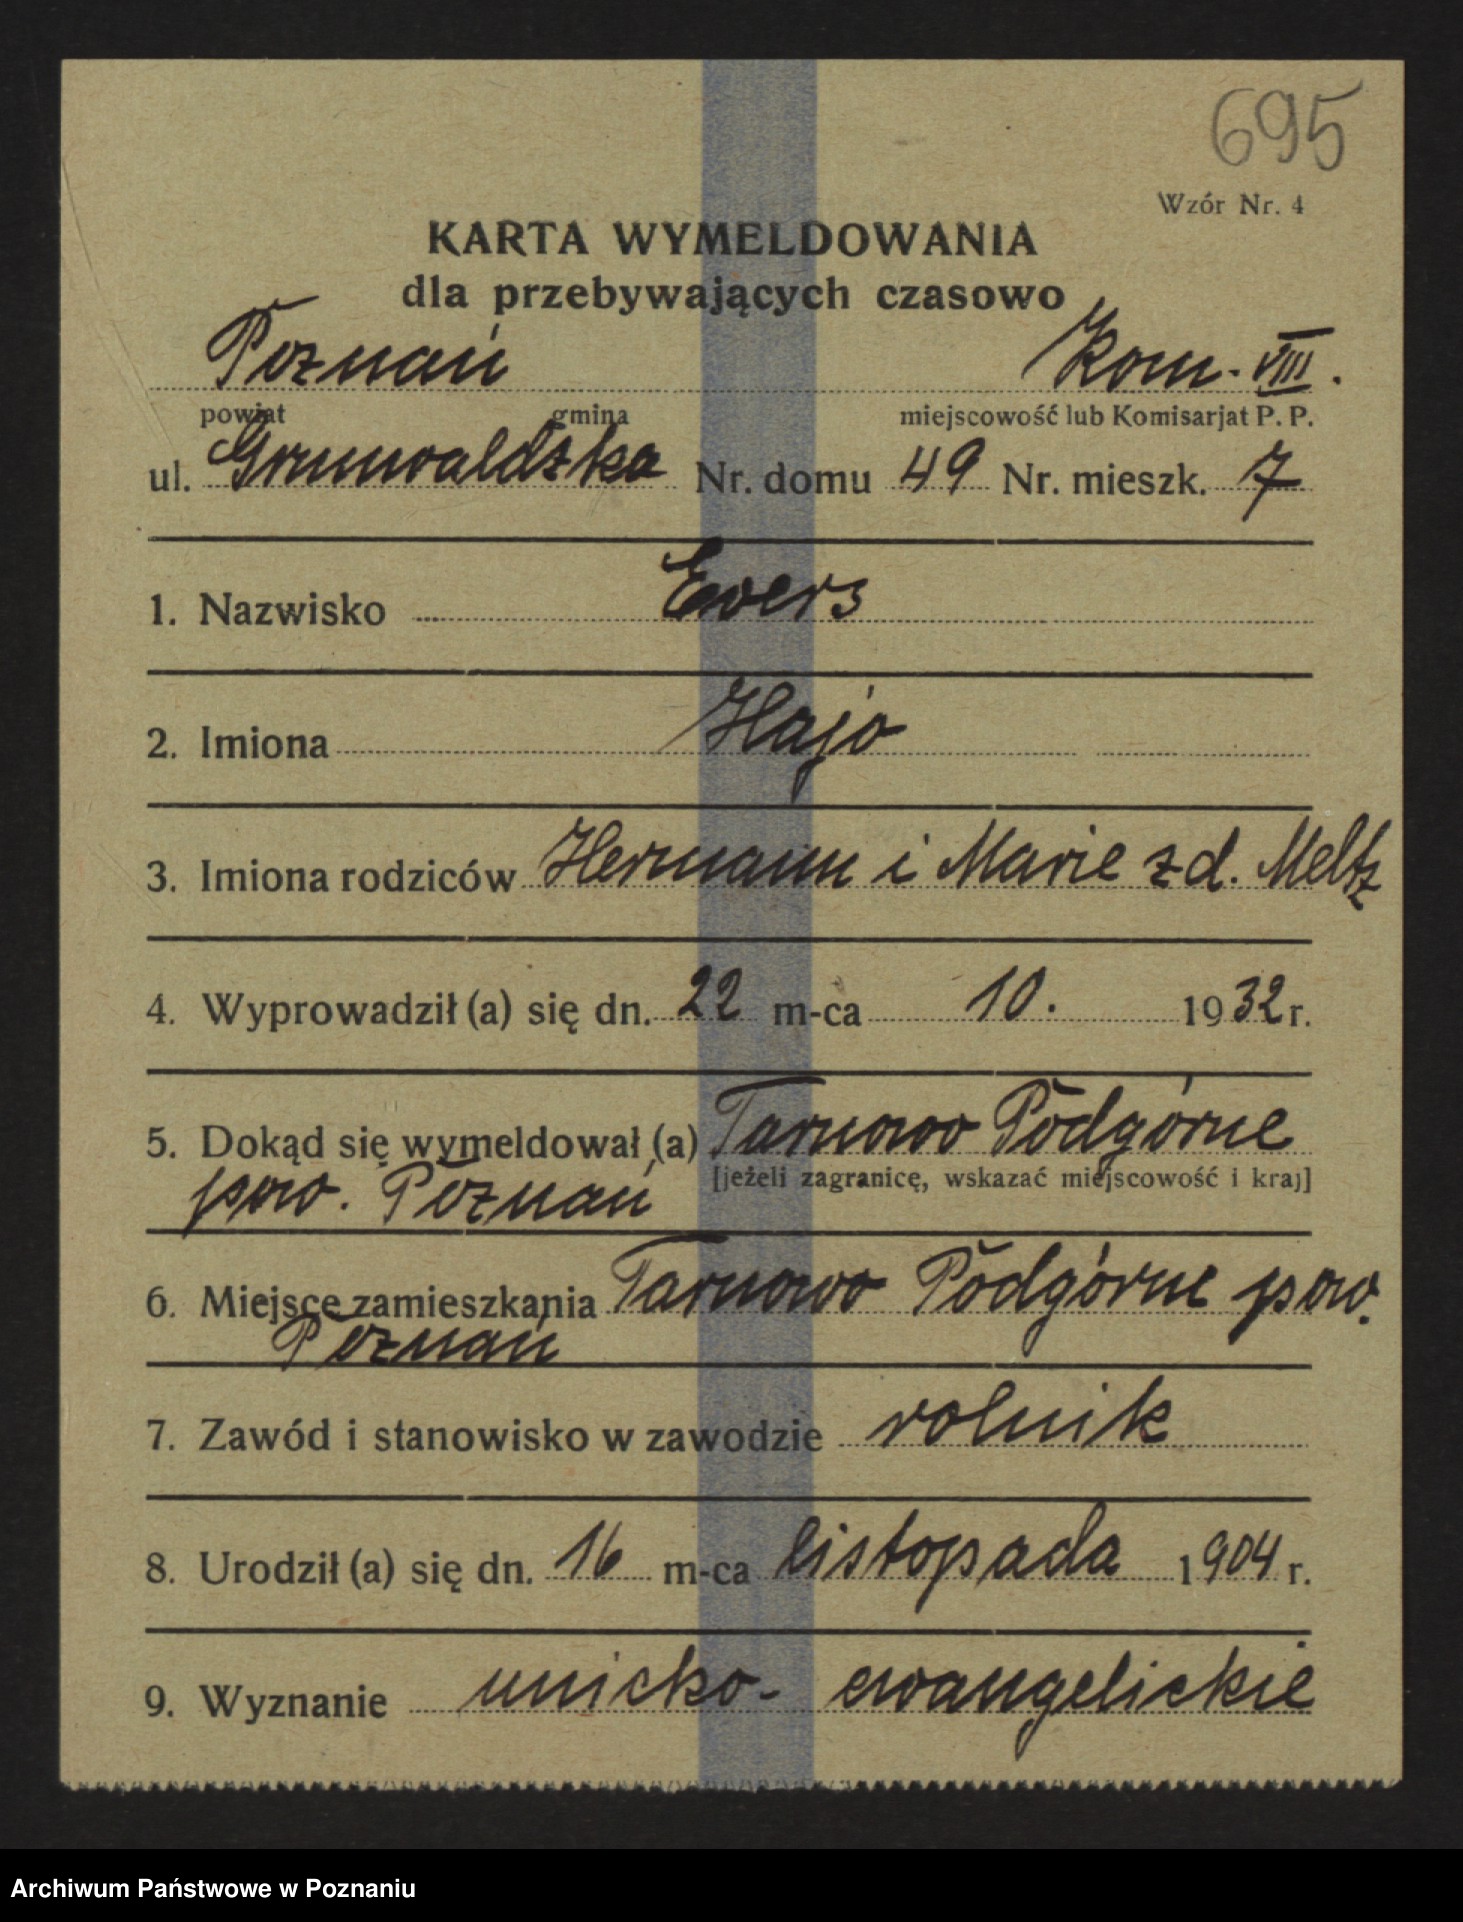 695
Wzór Nr. 4
KARTA WYMELDOWANIA
dla przebywających czasowo
Poznań Kom. VIII.
powiat gmina miejscowość lub Komisarjat P. P.
ul. Grunwaldzka Nr. domu 49 Nr. mieszk. 7
1. Nazwisko Ewers
2. Imiona Hajo
3. Imiona rodziców Hermann i Marie z d. Meltz
4. Wyprowadził (a) się dn. 22 m-ca 10. 1932 r.
5. Dokąd się wymeldował (a) Tarnowo Podgórne
[jeżeli zagranicę, wskazać miejscowość i kraj]
pow. Poznań
6. Miejsce zamieszkania Tarnowo Podgórne pow.
Poznań
7. Zawód i stanowisko w zawodzie rolnik
8. Urodził (a) się dn. 16 m-ca listopada 1904 r.
9. Wyznanie unicko-ewangelickie
Archiwum Państwowe w Poznaniu